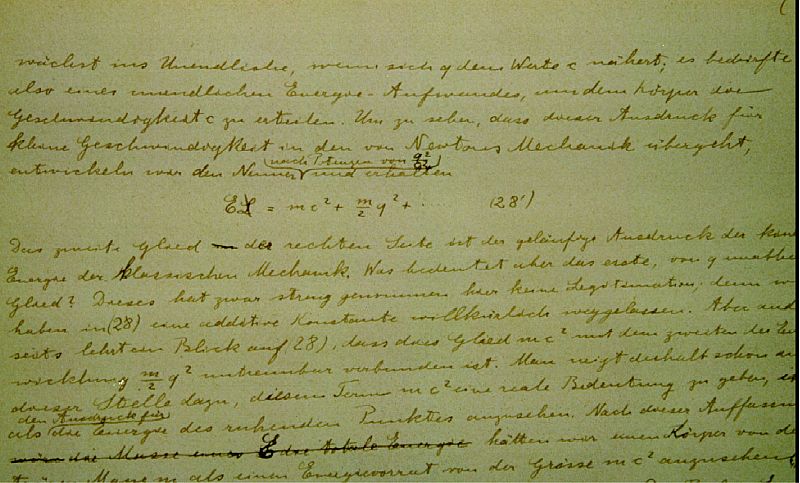 wächst ins Unendliche, wenn sich q dem Werte c nähert; es bedürfte
also eines unendlichen Energie-Aufwandes, um dem Körper die
Geschwindigkeit c zu erteilen. Um zu sehen, dass dieser Ausdruck für
kleine Geschwindigkeit in den von Newtons Mechanik übergeht,
nach Potenzen von q²/c²
entwickeln wir den Nenner und erhalten
E = mc² + m/2 q² + ···· (28')
Das zweite Glied der rechten Seite ist der geläufige Ausdruck der kin
Energie der klassischen Mechanik. Was bedeutet aber das erste, von q unabhä
Glied? Dieses hat zwar streng genommen hier keine Legitimation; denn w
haben in (28) eine additive Konstante willkürlich weggelassen. Aber and
seits lehrt ein Blick auf (28), dass das Glied mc² mit dem zweiten der En
wicklung m/2 q² untrennbar verbunden ist. Man neigt deshalb schon an
dieser Stelle dazu, diesem Term mc² eine reale Bedeutung zu geben,
den Ausdruck für
als die Energie des ruhenden Punktes anzusehen. Nach dieser Auffassun
wäre die Masse einer E die totale Energie hätten wir einen Körper von de
Masse m als einen Energievorrat von der Grösse mc² anzusehen